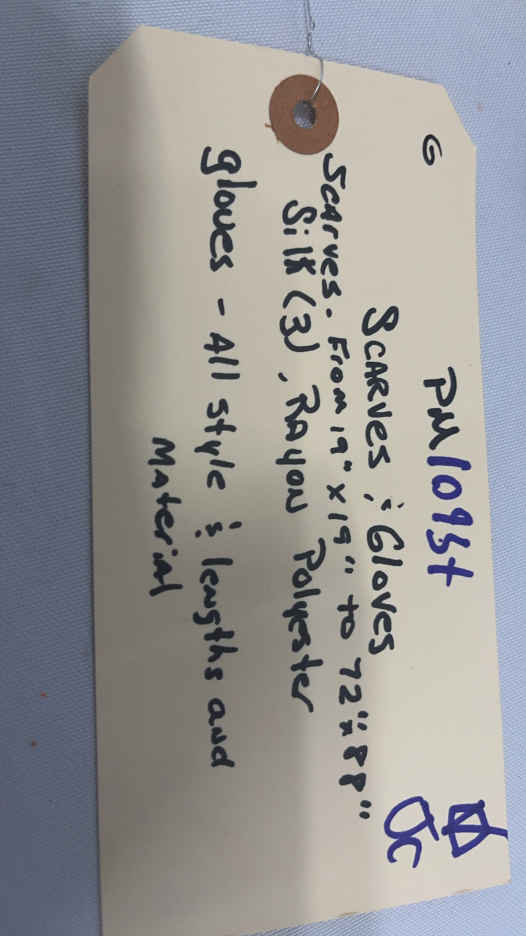 G
PM1095t
Scarves & Gloves
Scarves. From 19" x 19" to 72" x 88"
Silk (3), Rayon Polyester
gloves - All style & lengths and
Material
JC